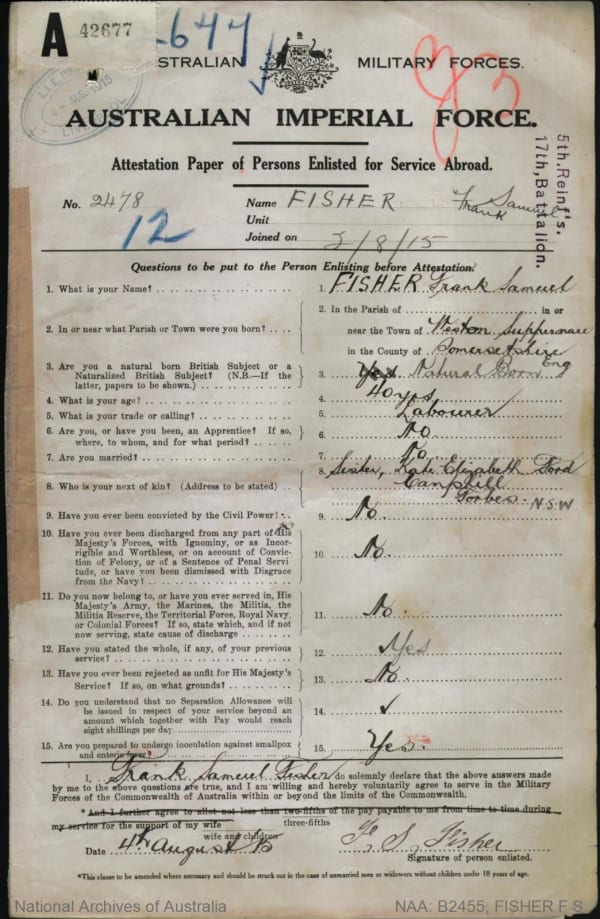 A 42677
647
AUSTRALIAN MILITARY FORCES.
LIVERPOOL
AUG. 1915
AUSTRALIAN IMPERIAL FORCE.
Attestation Paper of Persons Enlisted for Service Abroad.
5th. Reinf's,
17th, Battalion.
No. 2478 Name FISHER Frank Samuel
12 Unit
Joined on 2/8/15
Questions to be put to the Person Enlisting before Attestation.
1. What is your Name? 1. FISHER Frank Samuel
2. In or near what Parish or Town were you born? 2. In the Parish of in or
near the Town of Weston Suppermare
in the County of Somersetshire Eng
3. Are you a natural born British Subject or a
Naturalized British Subject? (N.B.—If the
latter, papers to be shown.) 3. Yes Natural Born
4. What is your age? 4. 40 yrs
5. What is your trade or calling? 5. Labourer
6. Are you, or have you been, an Apprentice? If so,
where, to whom, and for what period? 6. No
7. Are you married? 7. No
8. Who is your next of kin? (Address to be stated) 8. Sister, Kate Elizabeth Ford
Camphill
Forbes. N.S.W
9. Have you ever been convicted by the Civil Power? 9. No.
10. Have you ever been discharged from any part of His
Majesty's Forces, with Ignominy, or as Incor-
rigible and Worthless, or on account of Convic-
tion of Felony, or of a Sentence of Penal Servi
tude, or have you been dismissed with Disgrace
from the Navy? 10. No
11. Do you now belong to, or have you ever served in, His
Majesty's Army, the Marines, the Militia, the
Militia Reserve, the Territorial Force, Royal Navy,
or Colonial Forces? If so, state which, and if not
now serving, state cause of discharge 11. No.
12. Have you stated the whole, if any, of your previous
service? 12. Yes
13. Have you ever been rejected as unfit for His Majesty's
Service? If so, on what grounds? 13. No.
14. Do you understand that no Separation Allowance will
be issued in respect of your service beyond an
amount which together with Pay would reach
eight shillings per day 14. ✓
15. Are you prepared to undergo inoculation against smallpox
and enteric fever? 15. Yes.
I, Frank Samuel Fisher do solemnly declare that the above answers made
by me to the above questions are true, and I am willing and hereby voluntarily agree to serve in the Military
Forces of the Commonwealth of Australia within or beyond the limits of the Commonwealth.
*And I further agree to allot not less than two-fifths of the pay payable to me from time to time during
three-fifths
my service for the support of my wife
wife and children
Date 4th August 15 F. S. Fisher
Signature of person enlisted.
*This clause to be amended where necessary and should be struck out in the case of unmarried men or widowers without children under 18 years of age.
National Archives of Australia NAA: B2455, FISHER F S